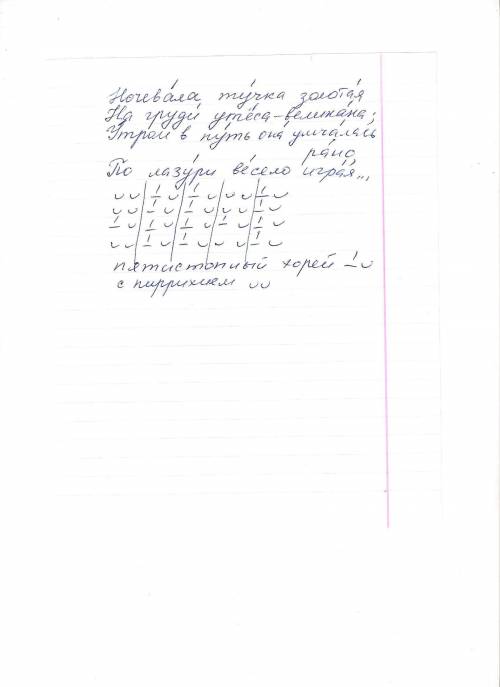 Ночева́ла ту́чка золота́я
На груди́ утёса-велика́на;
У́тром в пу́ть она́ умча́лась
ра́но,
По лазу́ри ве́село игра́я...
◡ ◡ / ⊥ ◡ / ⊥ ◡ / ◡ ◡ / ⊥ ◡
◡ ◡ / ⊥ ◡ / ⊥ ◡ / ◡ ◡ / ⊥ ◡
⊥ ◡ / ⊥ ◡ / ⊥ ◡ / ⊥ ◡ / ⊥ ◡
◡ ◡ / ⊥ ◡ / ⊥ ◡ / ◡ ◡ / ⊥ ◡
пятистопный хорей ⊥ ◡
с пиррихием ◡ ◡